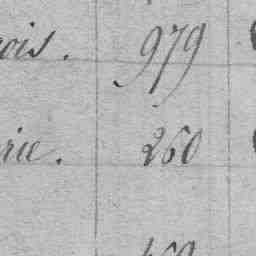 ois. 979
rie. 260